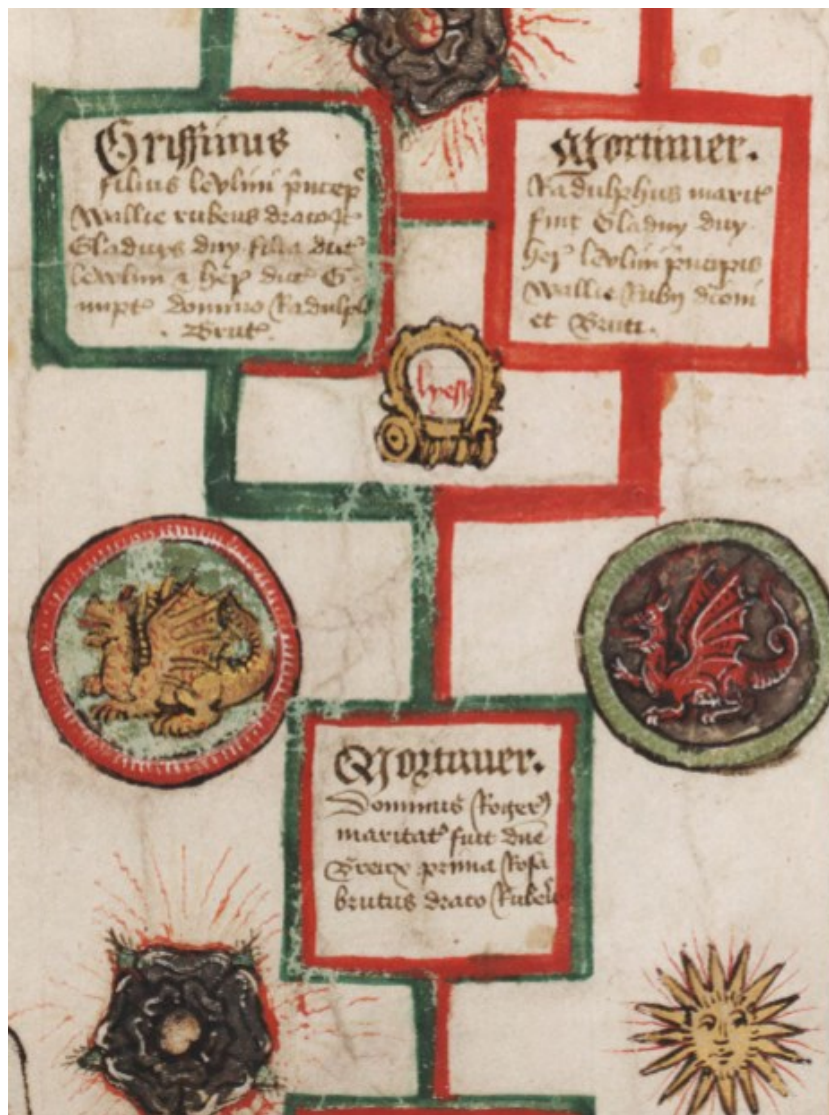 Griffinus
filius levlini princep
Wallie rubeus draco
Gladuys duy filia dict
levvlini & her dict G
nupt domino Radulph
Brut
Mortimer.
Radulphus marit
fuit Gladuy duy
her levlini principis
Wallie Rubij draconi
et Bruti.
Mortimer.
Dominus Roger
maritat fuit dne
prima Rosa
brutus draco Rube